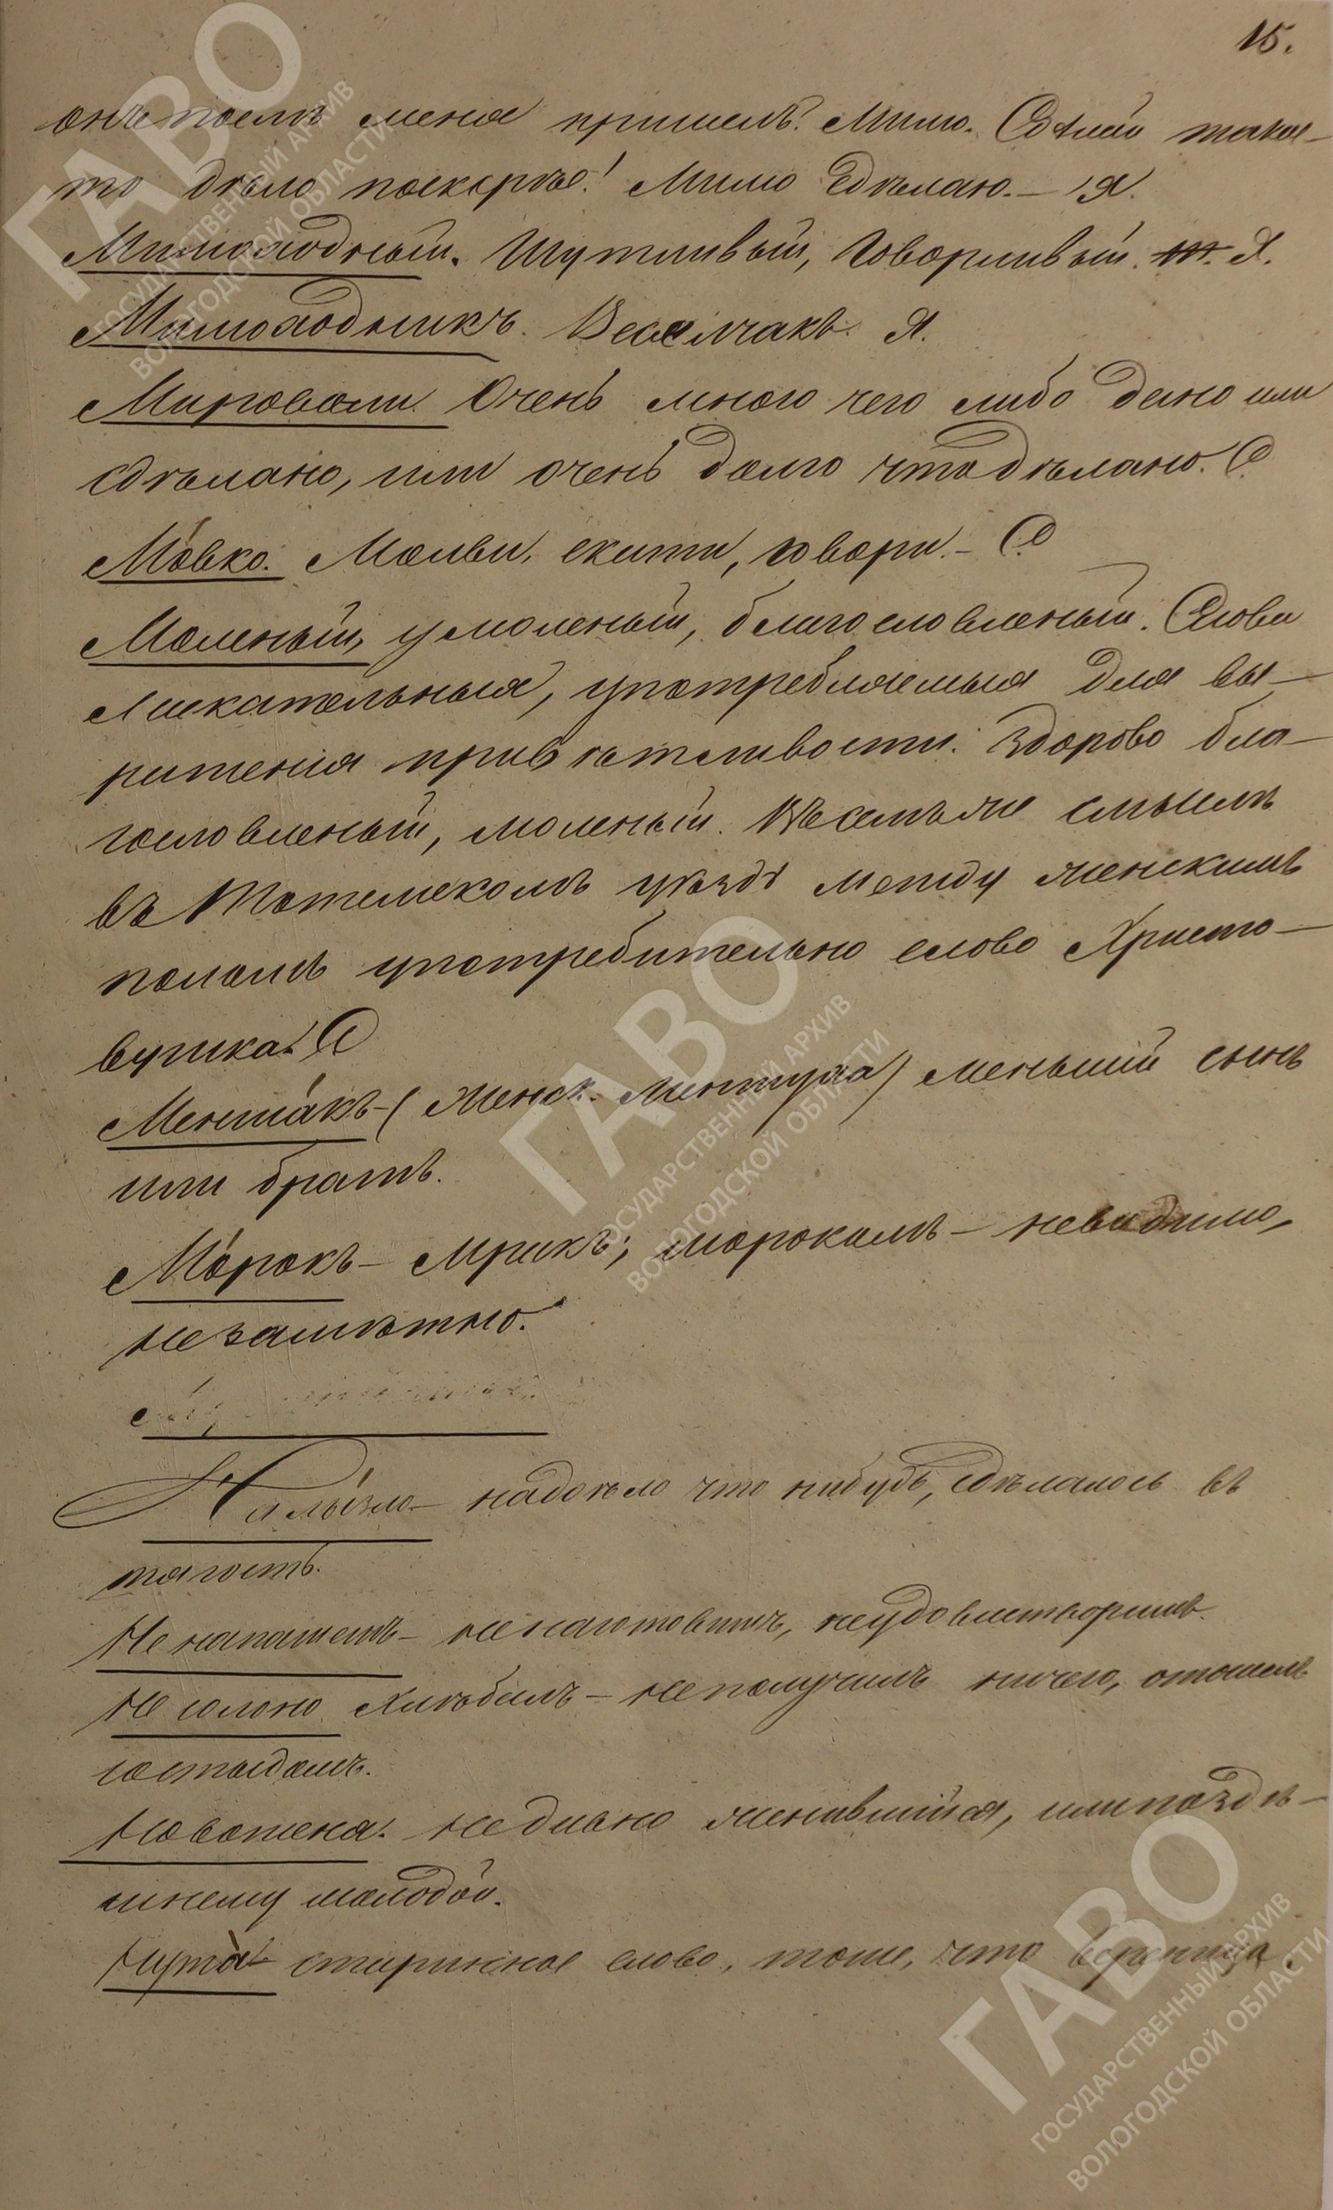 15.
онъ послѣ меня пришелъ? Мимо. Сдѣлай такое-
то дѣло поскорѣе! Мимо сдѣлаю. — Я.
Мимоходный. Шутливый, говорливый. Я.
Мимоходникъ. Весельчакъ. Я.
Мировали. Очень много чего либо дано или
сдѣлано, или очень долго что дѣлано. С
Мовко. Молви, скажи, говори. — С
Моленый, умоленый, благословленый. Слова
ласкательныя, употребляемыя для вы-
ражения привѣтливости: Здорово бла-
гословленый, моленый. Въ семъ же смыслѣ
въ Тотемскомъ уѣздѣ между женскимъ
поломъ употребительно слово Христо-
вушка. С
Меншакъ — (Женск. ) меньший сынъ
или братъ.
Морокъ — Мракъ; морокомъ — невидимо,
незамѣтно.
надоѣло что нибудь, сдѣлалось въ
тягость.
Не напашетъ — не наготовитъ, неудовлетворитъ.
Не солоно хлѣбалъ — не получилъ ничего, отошелъ
со стыдомъ.
Новожена. недавно женившийся, или по здѣ-
шнему молодой.
старинное слово, тоже, что вереница.
ГАВО
ГОСУДАРСТВЕННЫЙ АРХИВ
ВОЛОГОДСКОЙ ОБЛАСТИ
ГАВО
ГОСУДАРСТВЕННЫЙ АРХИВ
ВОЛОГОДСКОЙ ОБЛАСТИ
ГАВО
ГОСУДАРСТВЕННЫЙ АРХИВ
ВОЛОГОДСКОЙ ОБЛАСТИ